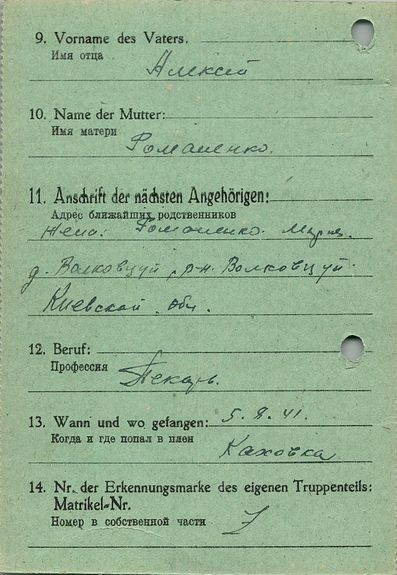 9. Vorname des Vaters.
Имя отца
Алексей
10. Name der Mutter:
Имя матери
Романенко.
11. Anschrift der nächsten Angehörigen:
Адрес ближайших родственников
Жена: Романенко
д. Волковцуй, р-н. Волковцуй
Киевской обл.
12. Beruf:
Профессия
Пекарь.
13. Wann und wo gefangen: 5.9.41.
Когда и где попал в плен
Каховка
14. Nr. der Erkennungsmarke des eigenen Truppenteils:
Matrikel-Nr.
Номер в собственной части